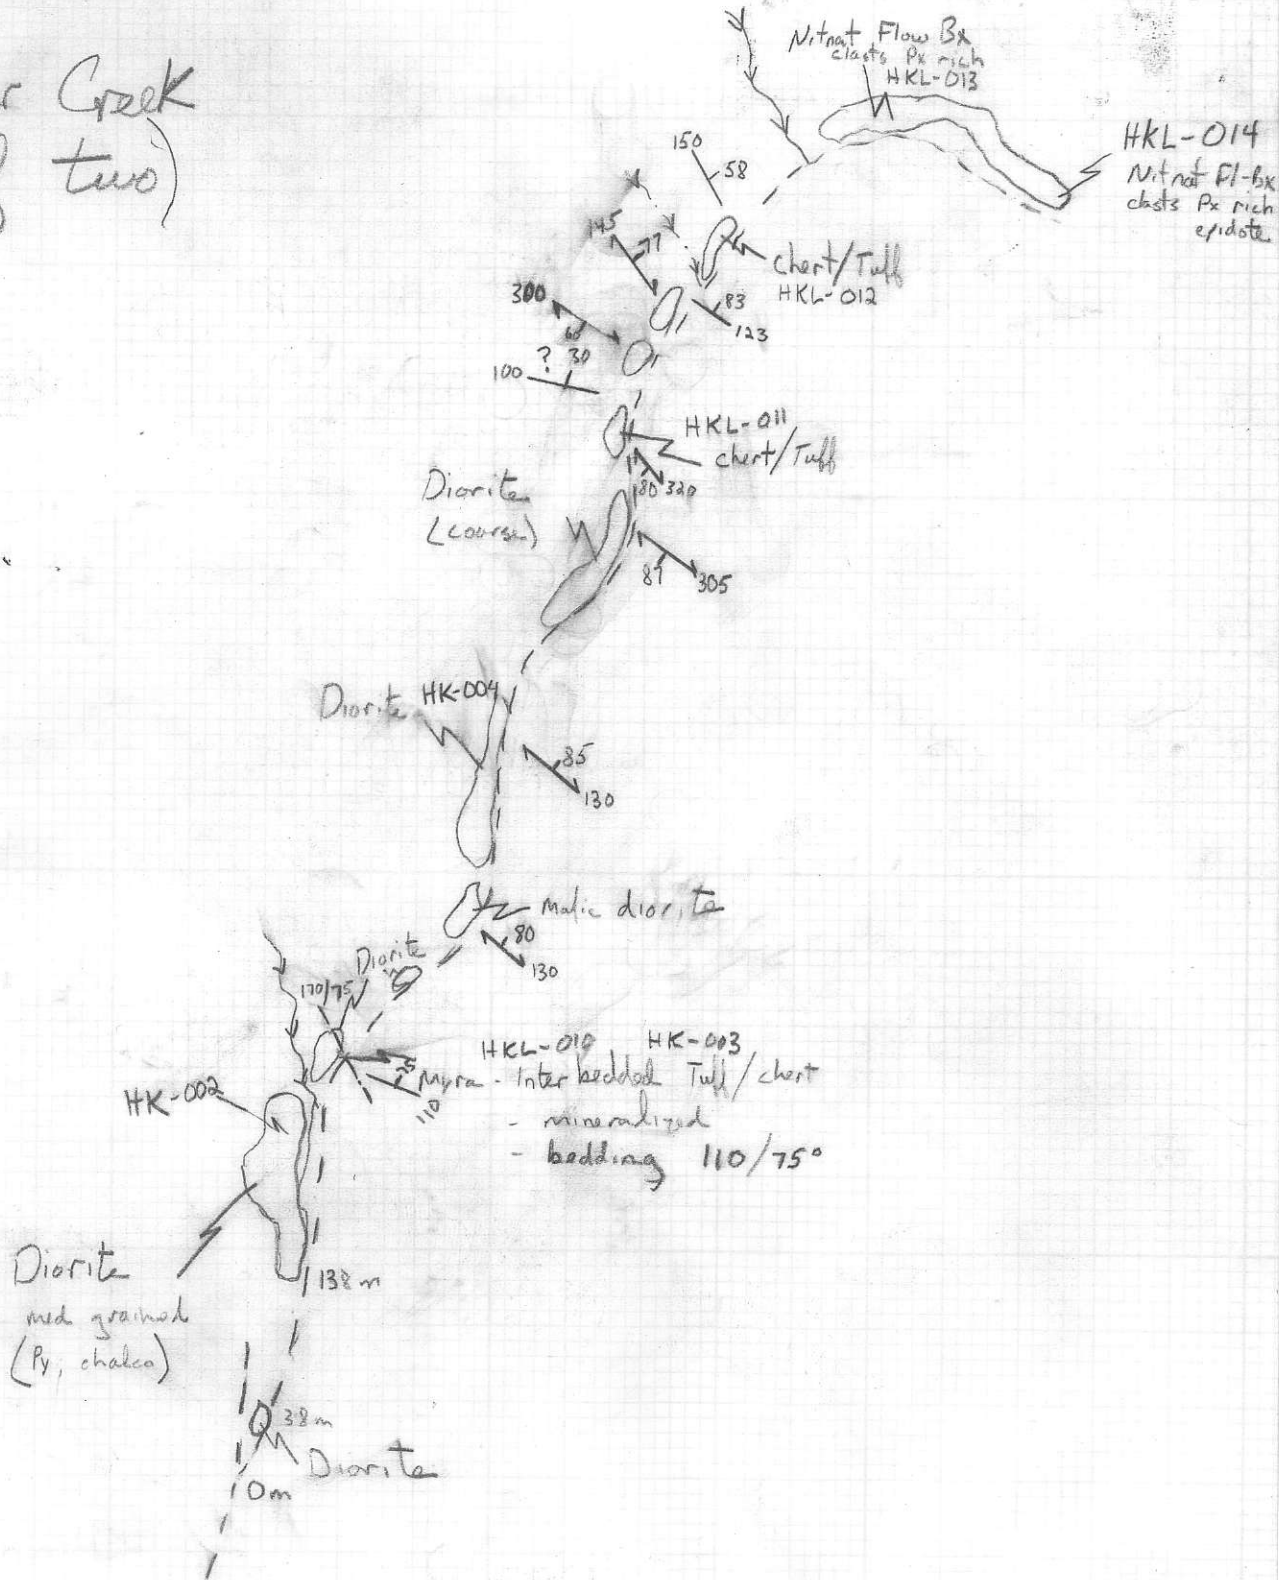 r Creek
two)
Nitnat Flow Bx
clasts Px rich
HKL-013
HKL-014
Nitnat Fl-Bx
clasts Px rich
epidote
150
58
145
77
chert/Tuff
HKL-012
300
60
83
123
? 30
100
HKL-011
chert/Tuff
80 320
Diorite
(course)
87
305
Diorite HK-004
85
130
Mafic diorite
80
130
Diorite
170/75
HKL-010 HK-003
75
110
Myra - Interbedded Tuff/chert
- mineralized
- bedding 110/75°
HK-002
138m
Diorite
med grained
(Py, chalco)
38m
Diorite
0m